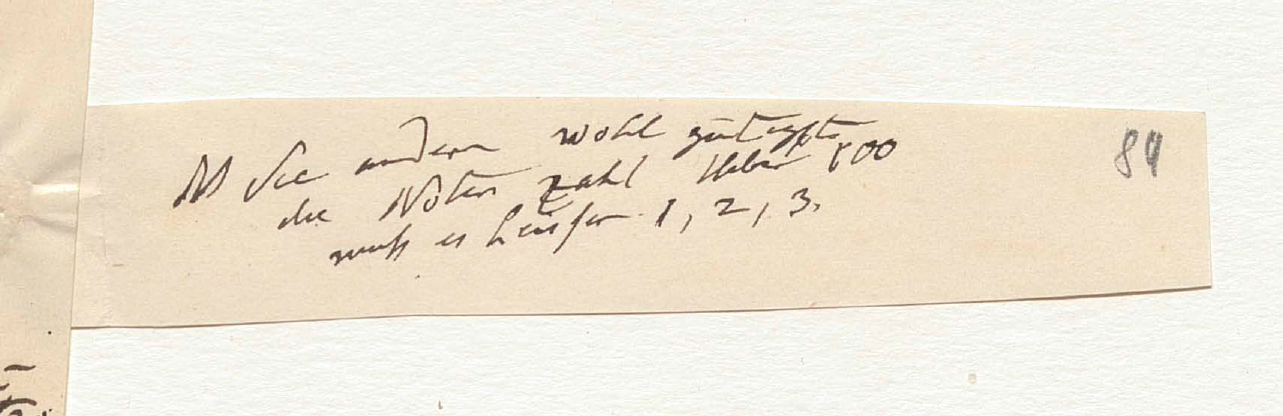 Sie ändern wohl gütigst
die Noten zahl Ueber 100
muss es heissen 1, 2, 3.
84